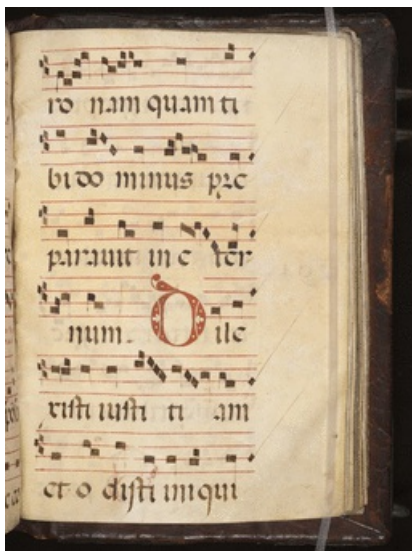 ro nam quam ti
bi do minus pre
paravit in e ter
num. Dile
xisti iusti ti am
et o disti iniqui